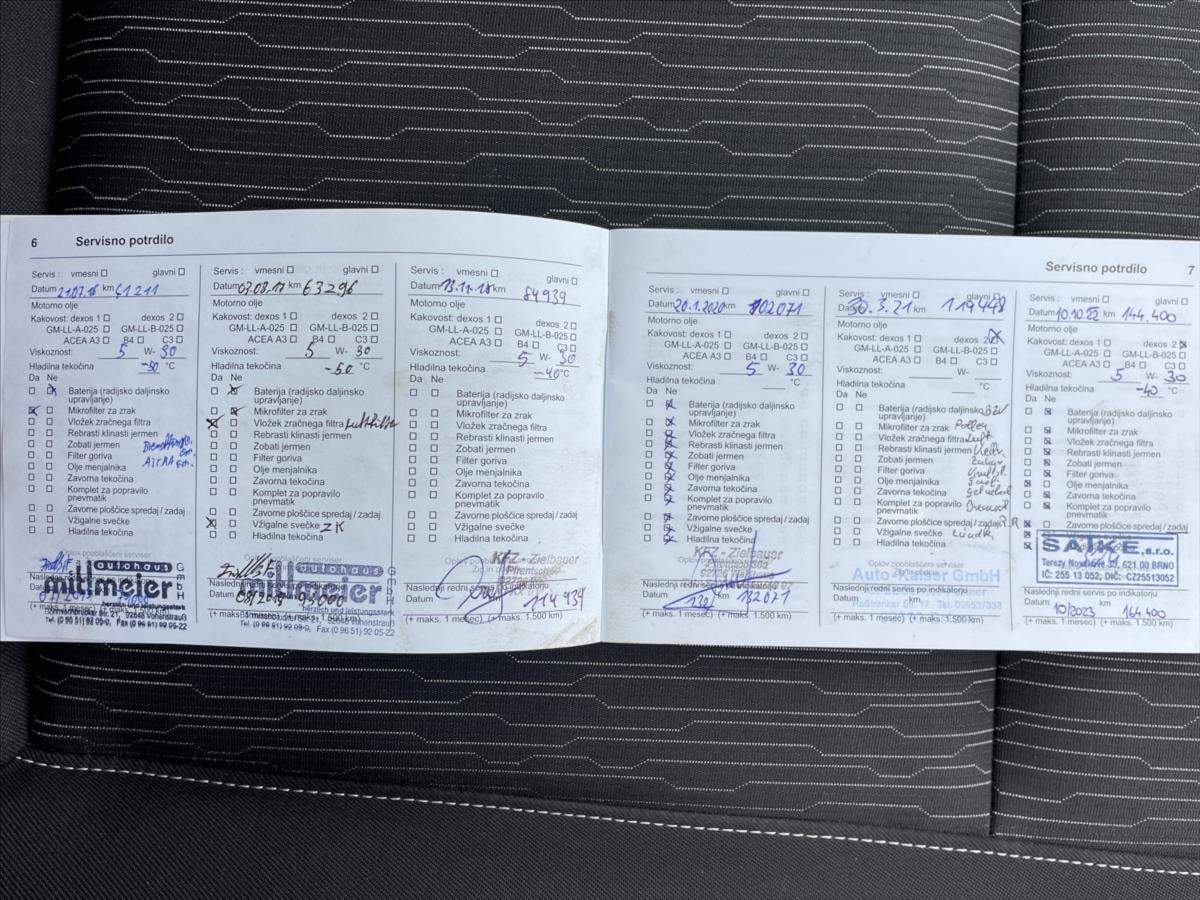 6 Servisno potrdilo
Servis : vmesni ☐ glavni ☐
Datum 21.07.16 km 61211
Motorno olje
Kakovost: dexos 1 ☐ dexos 2 ☐
GM-LL-A-025 ☐ GM-LL-B-025 ☐
ACEA A3 ☐ B4 ☐ C3 ☐
Viskoznost: 5 W- 30
Hladilna tekočina -50 °C
Da Ne
Baterija (radijsko daljinsko
upravljanje)
Mikrofilter za zrak
Vložek zračnega filtra
Rebrasti klinasti jermen
Zobati jermen
Filter goriva
Olje menjalnika
Zavorna tekočina
Komplet za popravilo
pnevmatik
Zavorne ploščice spredaj / zadaj
Vžigalne svečke
Hladilna tekočina
autohaus
mittmeier
GmbH
Datum
(+ maks. 1 mesec) (+ maks. 1.500 km)
Tel. (0 96 51) 92 05-0, Fax (0 96 51) 92 05-22
Servis : vmesni ☐ glavni ☐
Datum 03.08.17 km 63296
Motorno olje
Kakovost: dexos 1 ☐ dexos 2 ☐
GM-LL-A-025 ☐ GM-LL-B-025 ☐
ACEA A3 ☐ B4 ☐ C3 ☐
Viskoznost: 5 W- 30
Hladilna tekočina -50 °C
Da Ne
Baterija (radijsko daljinsko
upravljanje)
Mikrofilter za zrak
Vložek zračnega filtra Luftfilter
Rebrasti klinasti jermen
Zobati jermen
Filter goriva
Olje menjalnika
Zavorna tekočina
Komplet za popravilo
pnevmatik
Zavorne ploščice spredaj / zadaj
Vžigalne svečke ZK
Hladilna tekočina
autohaus
mittmeier
GmbH
Datum
herzlich und leistungsstark
Tel. (0 96 51) 92 05-0, Fax (0 96 51) 92 05-22
Servis : vmesni ☐ glavni ☐
Datum 13.11.18 km 84939
Motorno olje
Kakovost: dexos 1 ☐ dexos 2 ☐
GM-LL-A-025 ☐ GM-LL-B-025 ☐
ACEA A3 ☐ B4 ☐ C3 ☐
Viskoznost: 5 W- 30
Hladilna tekočina -40 °C
Da Ne
Baterija (radijsko daljinsko
upravljanje)
Mikrofilter za zrak
Vložek zračnega filtra
Rebrasti klinasti jermen
Zobati jermen
Filter goriva
Olje menjalnika
Zavorna tekočina
Komplet za popravilo
pnevmatik
Zavorne ploščice spredaj / zadaj
Vžigalne svečke
Hladilna tekočina
KFZ - Zielbauer
Datum 114 939
(+ maks. 1 mesec) (+ maks. 1.500 km)
Servisno potrdilo 7
Servis : vmesni ☐ glavni ☐
Datum 20.1.2020 km 102071
Motorno olje
Kakovost: dexos 1 ☐ dexos 2 ☐
GM-LL-A-025 ☐ GM-LL-B-025 ☐
ACEA A3 ☐ B4 ☐ C3 ☐
Viskoznost: 5 W- 30
Hladilna tekočina °C
Da Ne
Baterija (radijsko daljinsko
upravljanje)
Mikrofilter za zrak
Vložek zračnega filtra
Rebrasti klinasti jermen
Zobati jermen
Filter goriva
Olje menjalnika
Zavorna tekočina
Komplet za popravilo
pnevmatik
Zavorne ploščice spredaj / zadaj
Vžigalne svečke
Hladilna tekočina
KFZ - Zielbauer
Datum 132071
(+ maks. 1 mesec) (+ maks. 1.500 km)
Servis : vmesni ☐ glavni ☐
Datum 30.3.21 km 119448
Motorno olje
Kakovost: dexos 1 ☐ dexos 2 ☒
GM-LL-A-025 ☐ GM-LL-B-025 ☐
ACEA A3 ☐ B4 ☐ C3 ☐
Viskoznost: W-
Hladilna tekočina °C
Da Ne
Baterija (radijsko daljinsko
upravljanje)
Mikrofilter za zrak Pollen
Vložek zračnega filtra Luft
Rebrasti klinasti jermen
Zobati jermen
Filter goriva
Olje menjalnika
Zavorna tekočina
Komplet za popravilo
pnevmatik
Zavorne ploščice spredaj / zadaj
Vžigalne svečke
Hladilna tekočina
Oplov pooblaščeni serviser
Auto-Kaiser GmbH
Naslednji redni servis po indikatorju
Datum km
(+ maks. 1 mesec) (+ maks. 1.500 km)
Servis : vmesni ☐ glavni ☐
Datum 10.10.22 km 144.400
Motorno olje
Kakovost: dexos 1 ☐ dexos 2 ☒
GM-LL-A-025 ☐ GM-LL-B-025 ☐
ACEA A3 ☐ B4 ☐ C3 ☐
Viskoznost: 5 W- 30
Hladilna tekočina -40 °C
Da Ne
Baterija (radijsko daljinsko
upravljanje)
Mikrofilter za zrak
Vložek zračnega filtra
Rebrasti klinasti jermen
Zobati jermen
Filter goriva
Olje menjalnika
Zavorna tekočina
Komplet za popravilo
pnevmatik
Zavorne ploščice spredaj / zadaj
SAJKE, s.r.o.
Terezy Novákové 35, 621 00 BRNO
IČ: 255 13 052, DIČ: CZ25513052
Naslednji redni servis po indikatorju
Datum 10/2023 km 164.400
(+ maks. 1 mesec) (+ maks. 1.500 km)